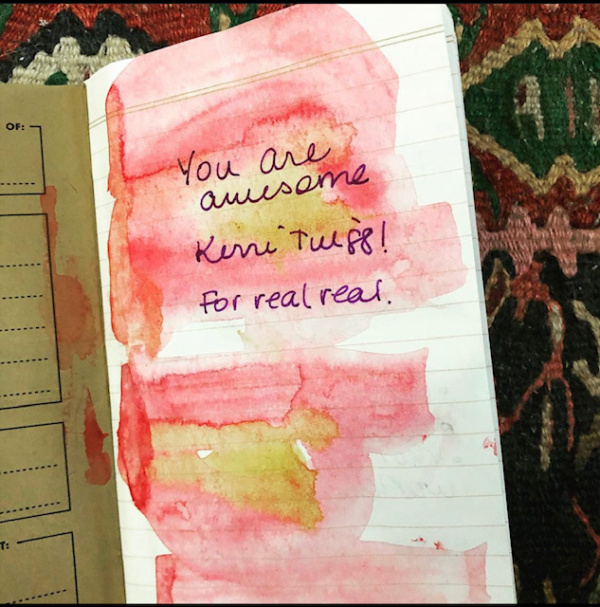 OF:
You are
awesome
Kerri Twigg!
For real real.
T: